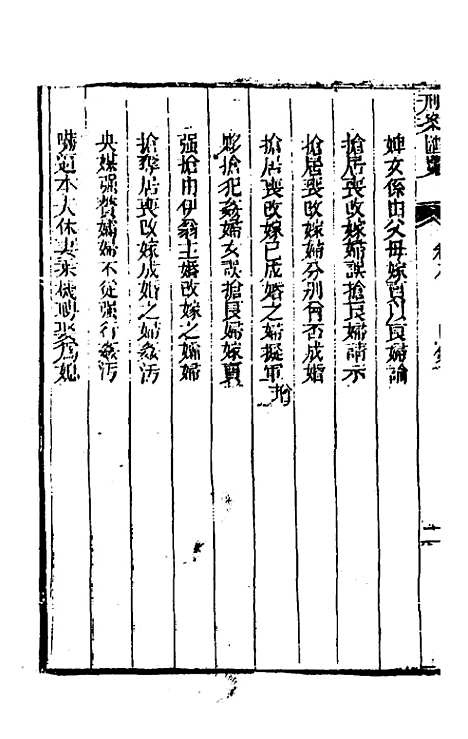 刑案匯覽
卷八 目錄
婢女係由父母嫁賣以良婦論
搶居喪改嫁婦誤搶良婦請示
搶居喪改嫁婦分別有否成婚
搶居喪改嫁已成婚之婦擬軍 增
夥搶犯姦婦女誤搶良婦嫁賣
强搶由伊翁主婚改嫁之孀婦
搶奪居喪改嫁成婚之婦姦汚
央媒强贅孀婦不從强行姦汚
嚇逼本夫休妻乘機轉娶爲妃